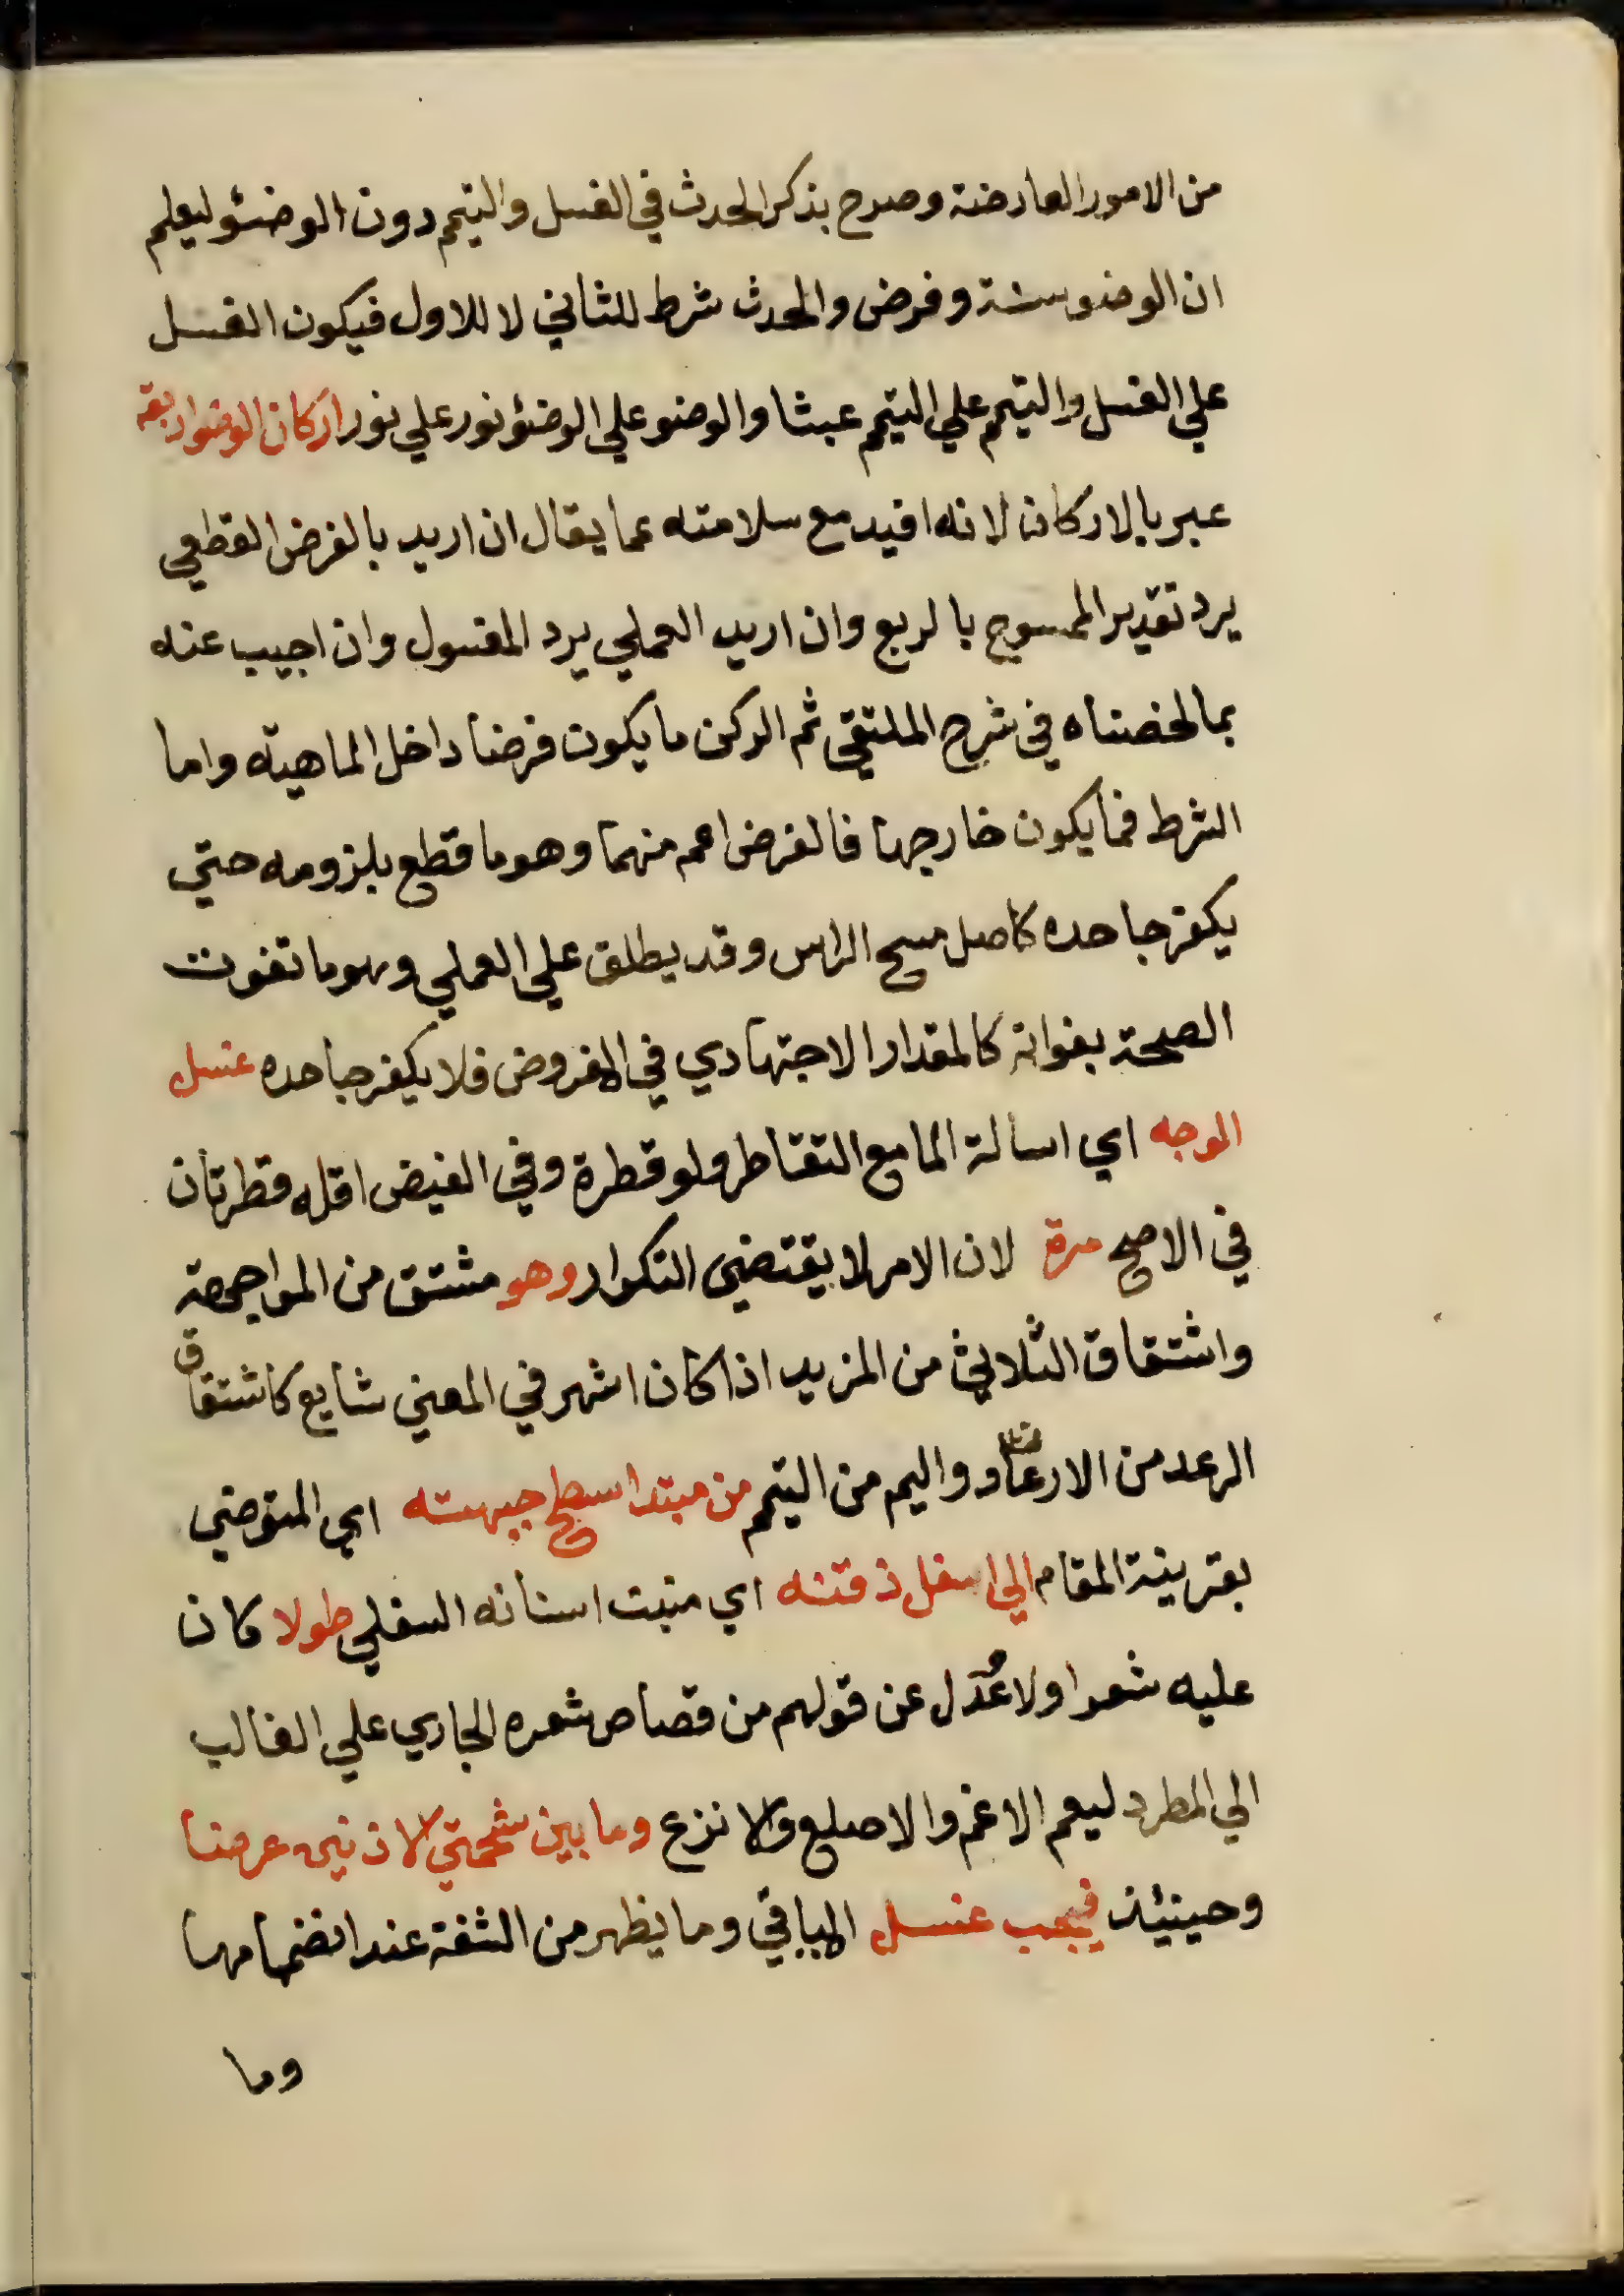 من الامور العارضة وصرح بذكر الحدث في الغسل والتيمم دون الوضئو ليعلم
ان الوضو سنة وفرض والحدث شرط للثاني لا للاول فيكون الغسل
علي الغسل والتيمم علي التيمم عبثا والوضو علي الوضئو نور علي نور اركان الوضوا ربعة
عبر بالاركان لانه افيد مع سلامته عما يقال ان اريد بالفرض القطعي
يرد تقدير الممسوح بالربع وان اريد العملي يرد المغسول وان اجيب عنه
بما لخصناه في شرح الملتقي ثم الركن ما يكون فرضا داخل الماهية واما
الشرط فما يكون خارجها فالفرض اعم منهما وهو ما قطع بلزومه حتي
يكفر جاحده كاصل مسح الراس وقد يطلق علي العملي وهو ما تفوت
الصحة بفواته كالمقدار الاجتهادي في المفروض فلا يكفر جاحده غسل
الوجه اي اسالة الما مع التقاطر ولو قطرة وفي الفيض اقله قطرتان
في الاصح مرة لان الامر لا يقتضي التكرار وهو مشتق من المواجهة
واشتقاق الثلاثي من المزيد اذا كان اشهر في المعني شايع كاشتقاق
الرعد من الارعاد واليم من التيمم من مبتدا سطح جبهته اي المتوضي
بقرينة المقام الي اسفل ذقنه اي منبت اسنانه السفلي طولا كان
عليه شعر اولا عُدل عن قولهم من قصاص شعره الجاري علي الغالب
الي المطرد ليعم الاغم والاصلع والانزع وما بين شحمتي الاذنين عرضا
وحينئذ فيجب غسل المياقي وما يظهر من الشفة عند انضمامها
وما